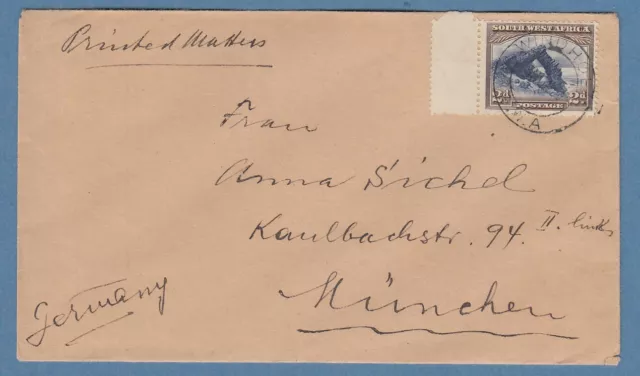 Printed Matters
SOUTH WEST AFRICA
2d 2d
POSTAGE
W.A
Frau
Anna Sichel
Kaulbachstr. 94 II. links
München
Germany